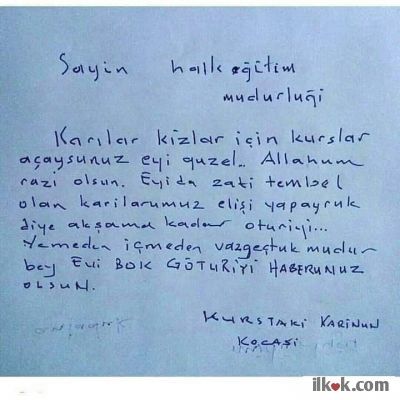 Sayin halk eğitim
mudurluği
Karılar kizlar için kurslar
açaysunuz eyi guzel.. Allahum
razi olsun. Eyida zati tembel
olan karilarumuz elişi yapayruk
diye akşama kadar oturiyi...
Yemeden içmeden vazgeçtuk mudur
bey Evi BOK GÖTURİYİ HABERUNUZ
OLSUN.
KURSTAKİ KARİNUN
KOCASİ
ilkok.com